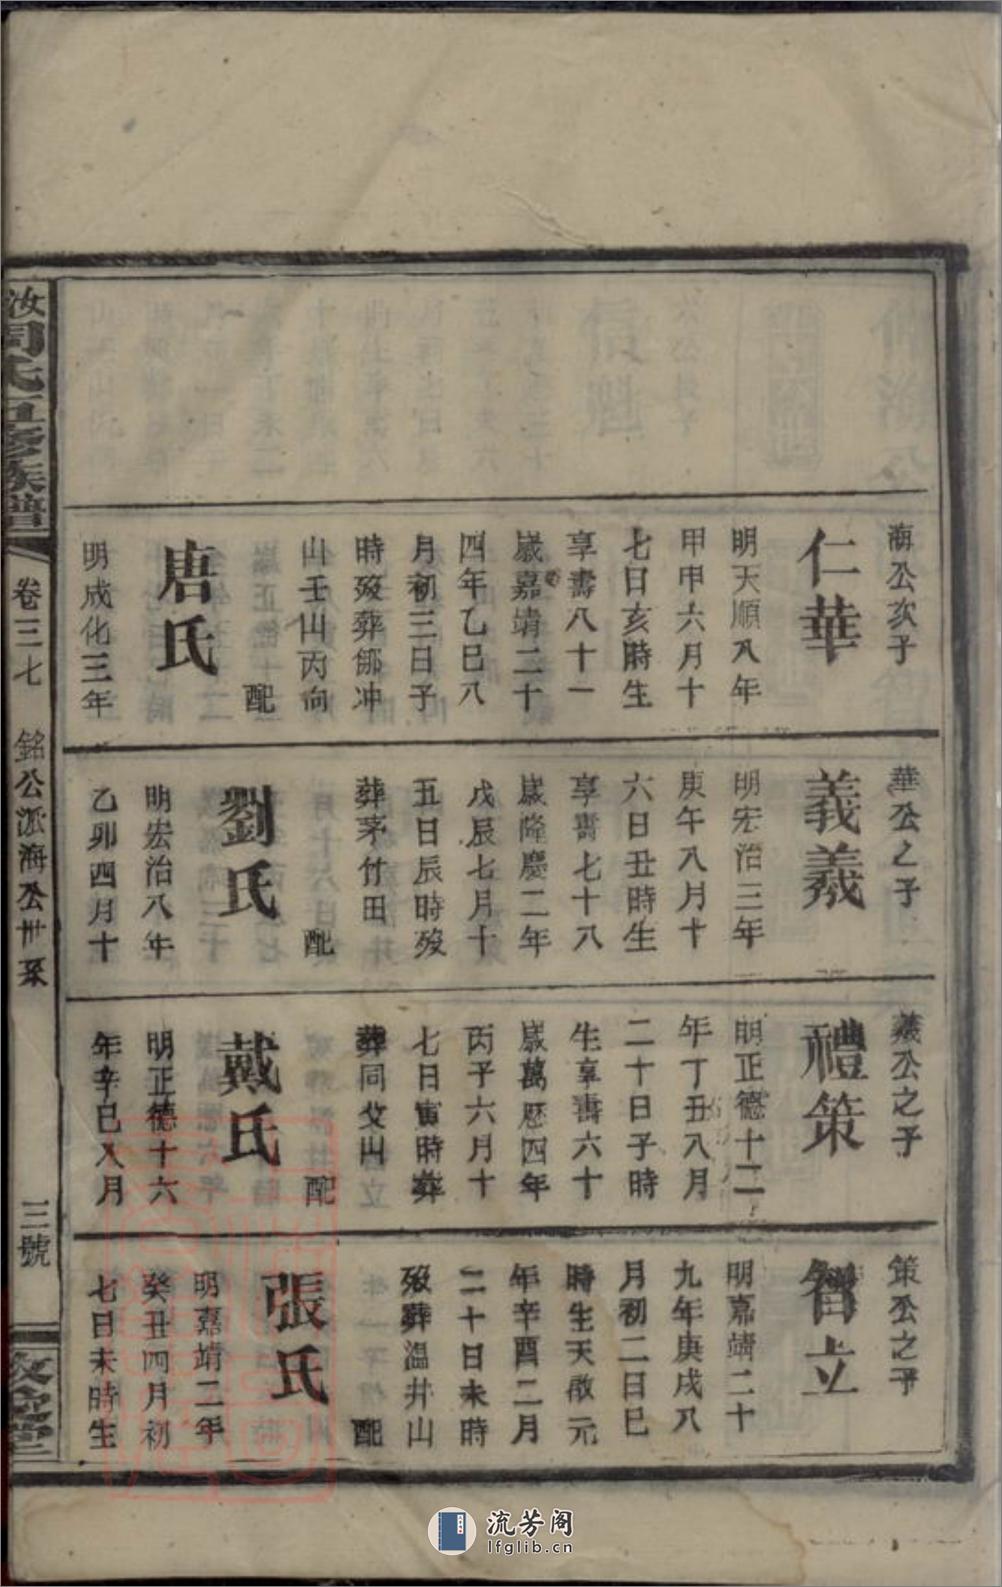 海公次子
仁華
明天順八年
甲申六月十
七日亥時生
享壽八十一
歲嘉靖二十
四年乙巳八
月初三日子
時歿葬鄉冲
山壬山丙向
配
唐氏
明成化三年
華公之子
義羲
明宏治三年
庚午八月十
六日丑時生
享壽七十八
歲隆慶二年
戊辰七月十
五日辰時歿
葬茅竹田
配
劉氏
明宏治八年
乙卯四月十
羲公之子
禮策
明正德十二
年丁丑八月
二十日子時
生享壽六十
歲萬歷四年
丙子六月十
七日寅時葬
葬同父山
配
戴氏
明正德十六
年辛巳入月
策公之子
智立
明嘉靖二十
九年庚戌八
月初二日巳
時生天啟元
年辛酉二月
二十日未時
歿葬溫井山
配
張氏
明嘉靖二年
癸丑四月初
七日未時生
汝周氏五修族譜
卷三七
銘公派海公世系
三號
敦倫堂
流芳阁
lfglib.cn